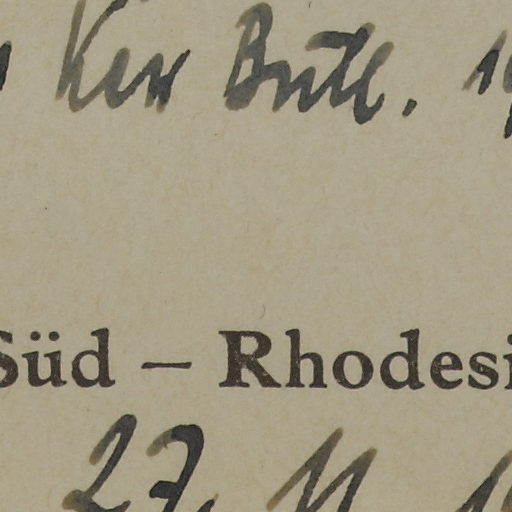 Ker Butl. 19
Süd – Rhodesi
27. 11. 1